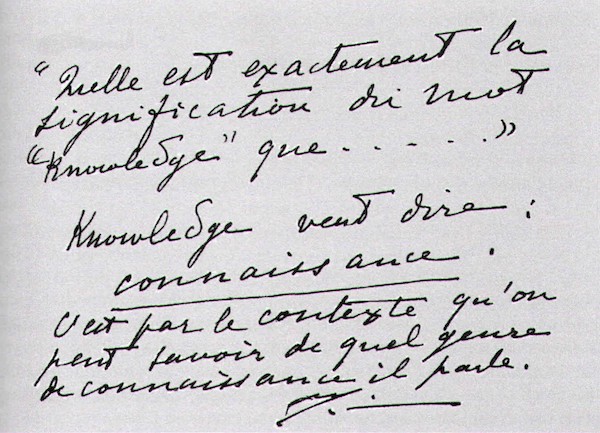 "Quelle est exactement la
signification du mot
"Knowledge" que . . . . . ."
Knowledge veut dire :
connaissance .
C'est par le contexte qu'on
peut savoir de quel genre
de connaissance il parle.